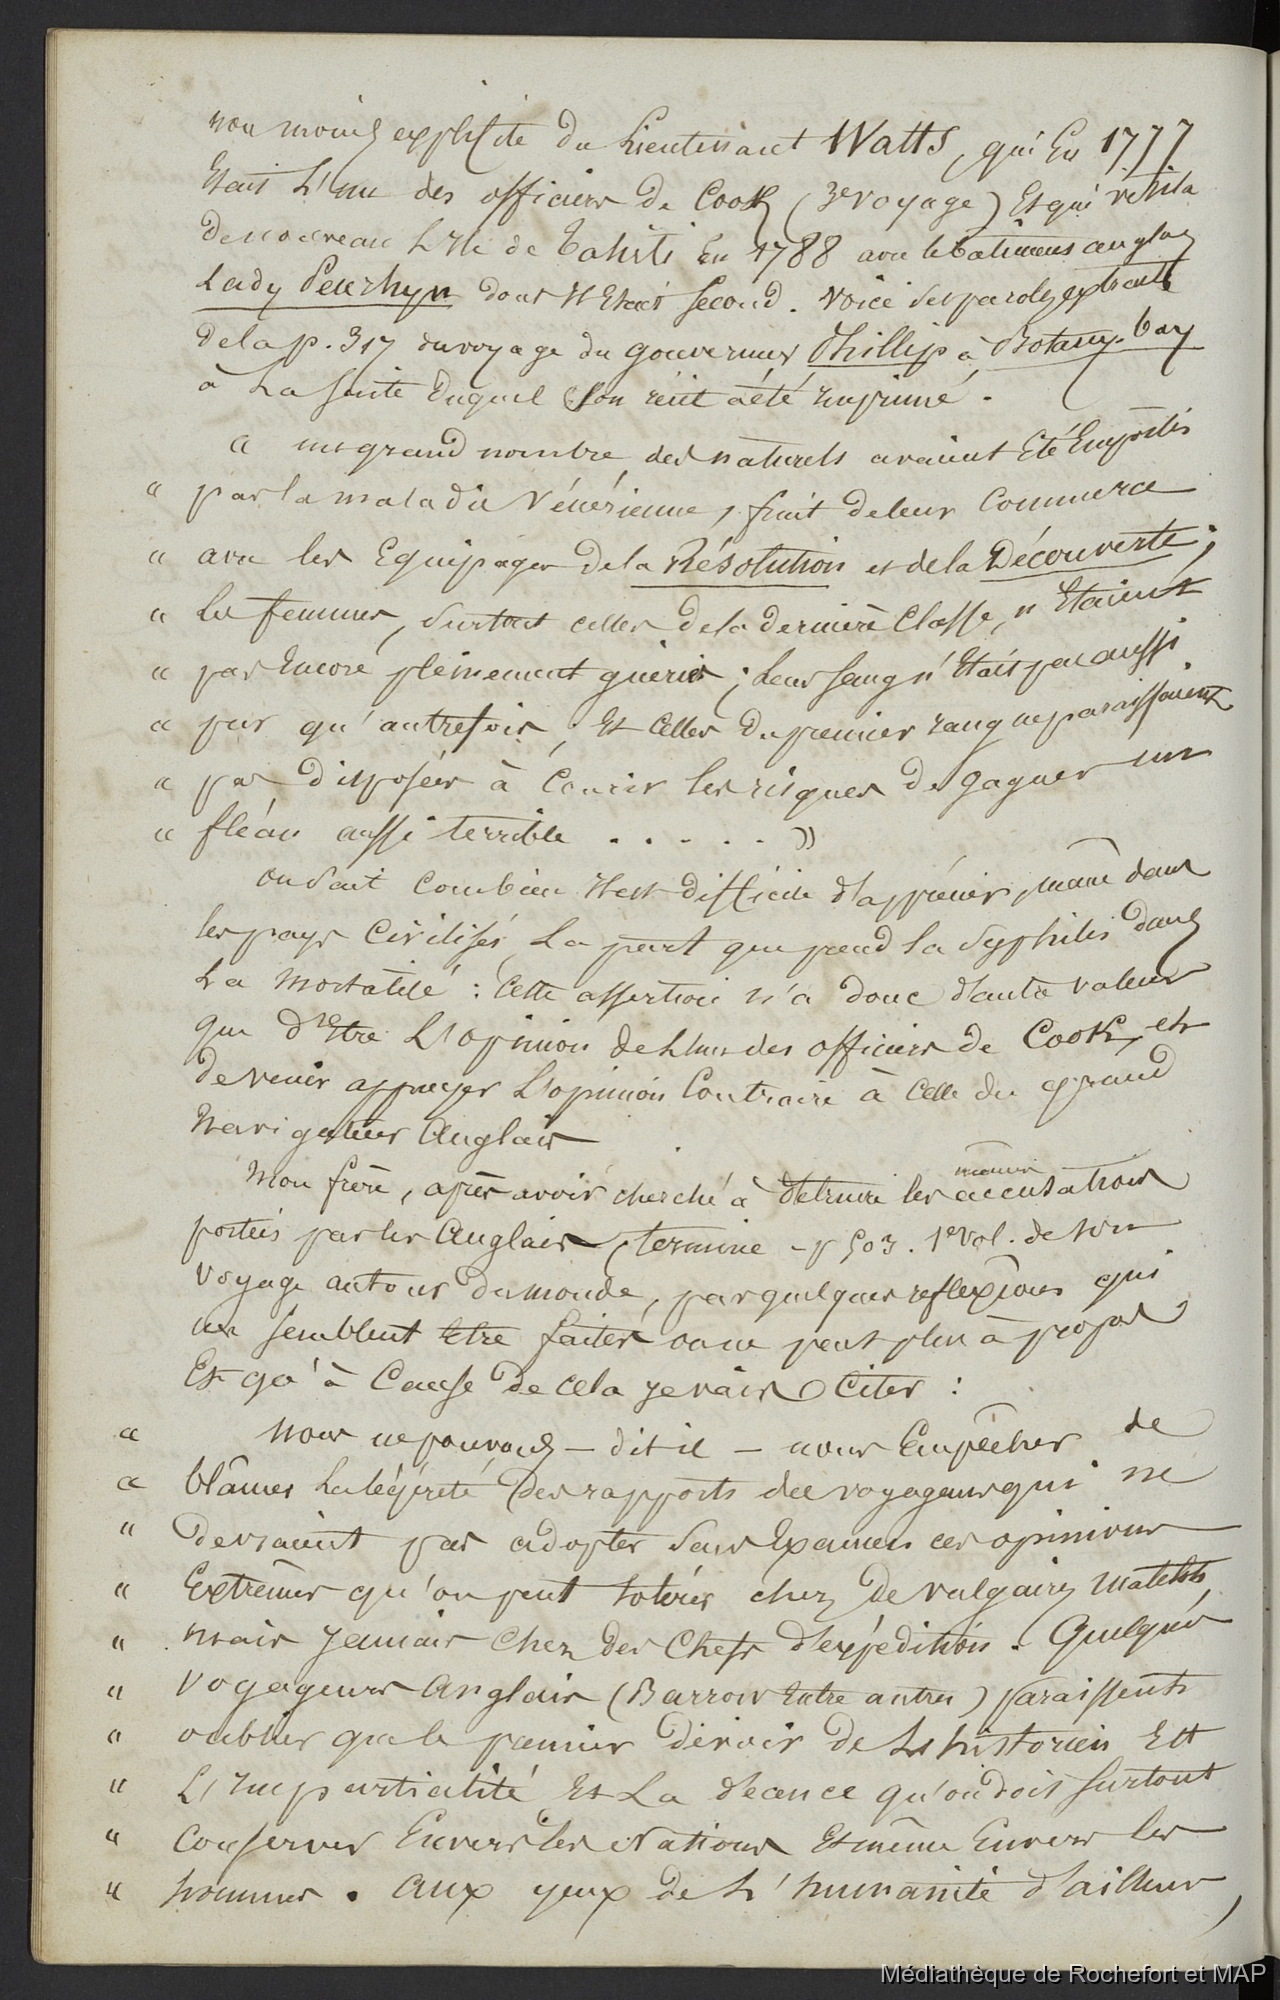 non moins explicite du Lieutenant Watts, qui En 1777
Etait L'un des officiers de Cook (3e voyage) Et qui visita
de nouveau L'Ile de Tahiti En 1788 avec le bâtiment anglais
Lady Penrhyn dont Il Etait second. Voici ses paroles extraites
de la p. 317 du voyage du gouverneur Phillip à Botany-bay
à La suite duquel son récit a été Imprimé.
« un grand nombre des naturels avaient Eté Emportés
« par la maladie Vénérienne, fruit de leur Commerce
« avec les Equipages de la Résolution et de la Découverte;
« les femmes, surtout celles de la dernière Classe, n'Etaient
« pas Encore pleinement guéries; Leur sang n'Etait pas aussi
« pur qu'autrefois; Et Celles du premier rang ne paraissaient
« pas disposées à Courir les risques de gagner un
« fléau aussi terrible ..... »
on sait Combien Il est difficile d'apprécier, même dans
les pays Civilisés, La part que prend la Syphilis dans
La mortalité : Cette assertion n'a donc d'autre valeur
que d'Etre L'opinion de L'un des officiers de Cook, et
de venir appuyer L'opinion Contraire à Celle du grand
Navigateur Anglais
Mon frère, après avoir cherché à détruire les accusations
portées par les Anglais, termine - p 503. 1er Vol. de son
Voyage autour du monde, par quelques reflexions qui
me semblent Etre faites on ne peut plus à propos
Et qu'à Cause de cela je vais Citer :
« Nous ne pouvons - dit il - nous Empêcher de
« blâmer La légéreté des rapports des voyageurs qui ne
« devraient pas adopter sans Examen ces opinions
« Extrêmes qu'on peut tolérer chez de vulgaires matelots,
« mais jamais Chez des Chefs d'expédition. Quelques
« Voyageurs Anglais (Barrow Entre autres) paraissent
« oublier que le premier devoir de L'historien Est
« L'Impartialité Et La décence qu'on doit surtout
« Conserver Envers les Nations Et même Envers les
« hommes. Aux yeux de L'humanité d'ailleurs,
Médiathèque de Rochefort et MAP